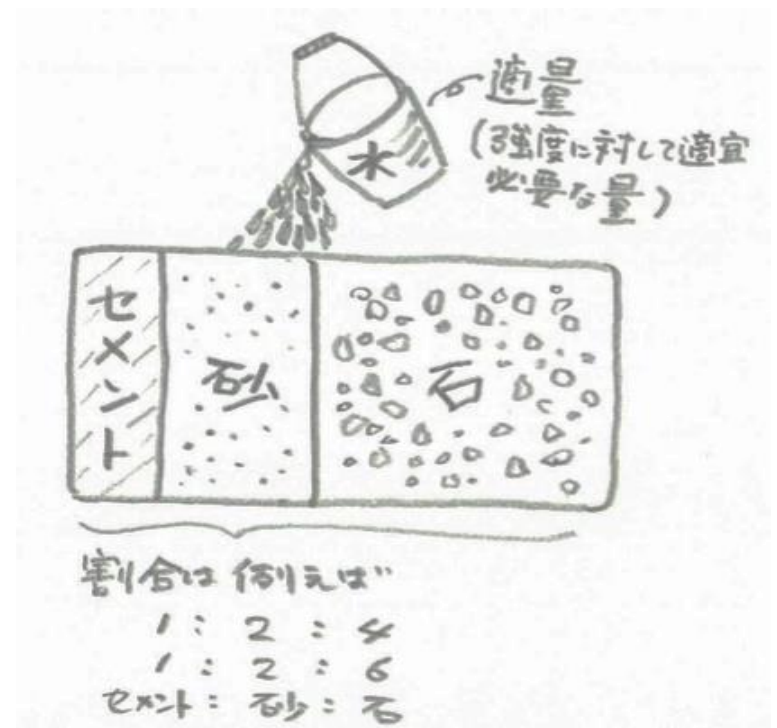 水
適量
(強度に対して適宜
必要な量)
セメント
砂
石
割合は 例えば
1 : 2 : 4
1 : 2 : 6
セメント : 砂 : 石